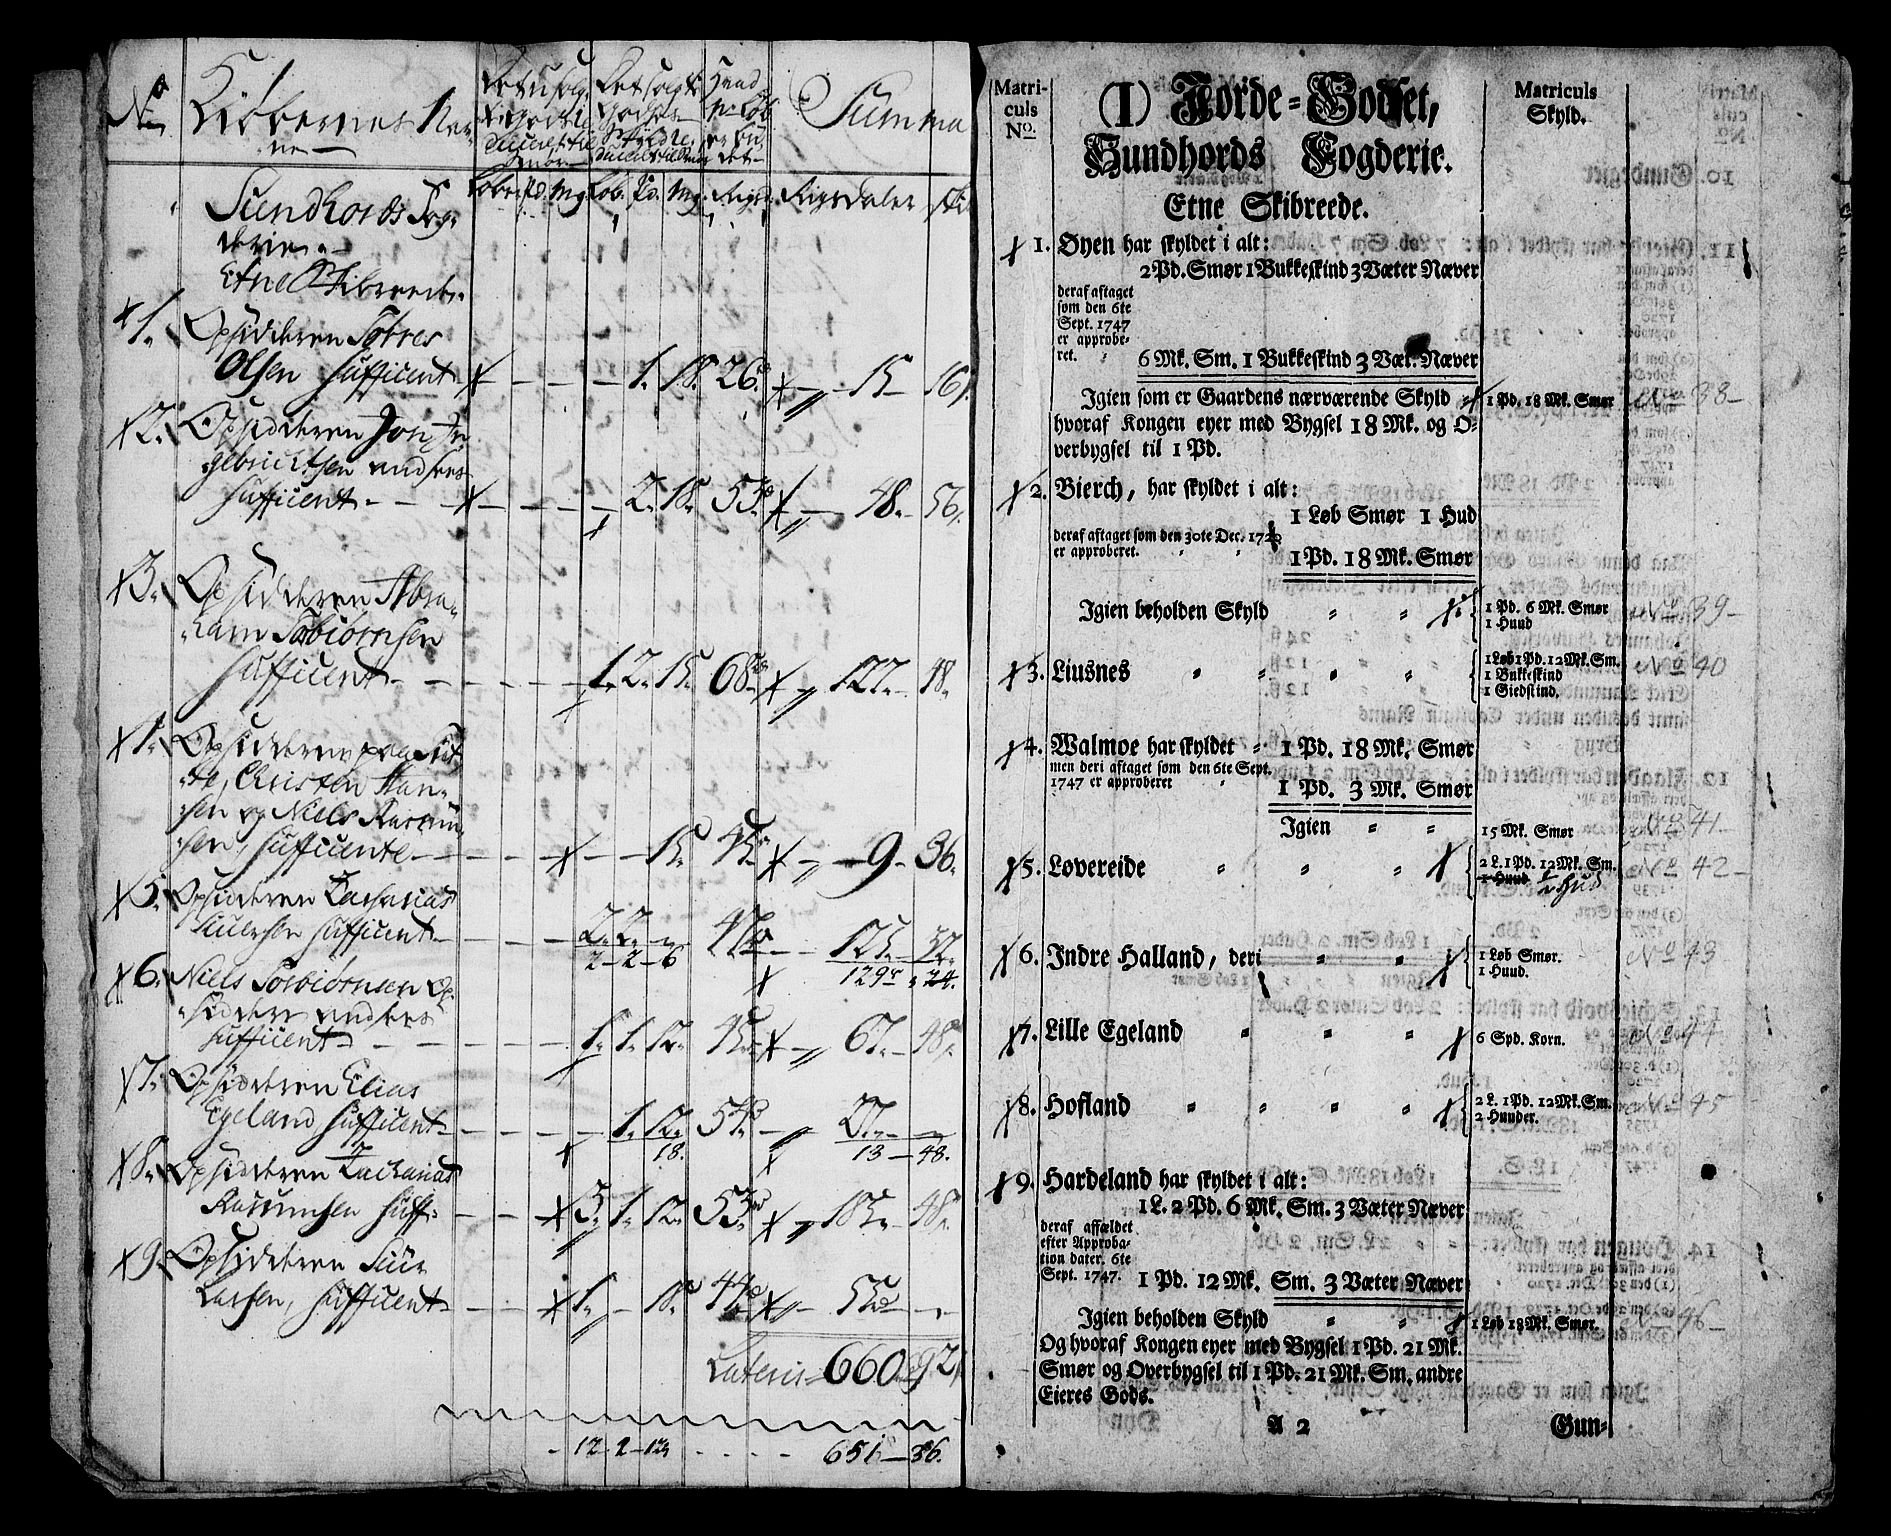 No
Kiøbernes Nav-
ne
Summa
Løber Pd. Mg. Løb. Pd. Mg. Rigsd. Rigsdaler skil
Sundhords Fog-
derie
Etne Skibreede.
1. Opsidderen
Olsen sufficent 1. 18. 26. 15 16.
2. Opsidderen Jon In-
gebrichtsen
sufficent 2. 18. 53. 48. 56.
3. Opsidderen Abra-
ham Torbiørnsen
sufficent 1. 2. 15. 68. 127. 48.
4. Opsidderne paa
Christen Han-
sen og Niels Rasmu-
sen, sufficente 15. 45. 9. 36.
5. Opsidderen Zacharias
sufficent 2. 2. 47. 125. 32.
2 - 2 - 6 129 24.
6. Niels Torbiørnsen Op-
sidder
sufficent 1. 1. 12. 45. 67. 48.
7. Opsidderen Elias
Egeland sufficent 1. 12. 54. 27.
18. 13 - 48.
8. Opsidderen Zacharias
Rasmusen suff: 3. 1. 12. 53. 185. 48.
9. Opsidderen Siur
Larsen, sufficent 1. 18. 44. 55.
Lateris 660 92
12 - 2 - 12 651 - 36.
Matri-
culs
No.
(1) Førde-Godset,
Sundhords Fogderie.
Etne Skibreede.
Matriculs
Skyld.
1. Øyen har skyldet i alt:
2 Pd. Smør 1 Bukkeskind 3 Væter Næver
deraf aftaget
som den 6te
Sept. 1747
er approbe-
ret. 6 Mk. Sm. 1 Bukkeskind 3 Væt. Næver
Igien som er Gaardens nærværende Skyld 1 Pd. 18 Mk. Smør No 38
hvoraf Kongen eyer med Bygsel 18 Mk. og O-
verbygsel til 1 Pd.
2. Bierch, har skyldet i alt:
1 Løb Smør 1 Hud
deraf aftaget som den 30te Dec.
er approberet. 1 Pd. 18 Mk. Smør
Igien beholden Skyld 1 Pd. 6 Mk. Smør No 39
1 Huud
3. Liusnes 1 Løb 1 Pd. 12 Mk. Sm. No 40
1 Bukkeskind
1 Giedskind.
4. Walmoe har skyldet 1 Pd. 18 Mk. Smør
men deri aftaget som den 6te Sept.
1747 er approberet
1 Pd. 3 Mk. Smør
Igien 15 Mk. Smør No 41
5. Løvereide 2 L. 1 Pd. 12 Mk. Sm. No 42
1 Huud ½ Hud
6. Indre Halland, deri 1 Løb Smør. No 43
1 Huud.
7. Lille Egeland 6 Spd. Korn. No 44
8. Hofland 2 L. 1 Pd. 12 Mk. Sm. No 45
2 Huuder.
9. Hardeland har skyldet i alt:
1 L. 2 Pd. 6 Mk. Sm. 3 Væter Næver
deraf affældet
efter Approba-
tion dater. 6te
Sept. 1747. 1 Pd. 12 Mk. Sm. 3 Væter Næver
Igien beholden Skyld 1 Løb 18 Mk. Smør. No 46
Og hvoraf Kongen eyer med Bygsel 1 Pd. 21 Mk.
Smør og Overbygsel til 1 Pd. 21 Mk. Sm. andre
Eieres Gods.
A 2
Gun-